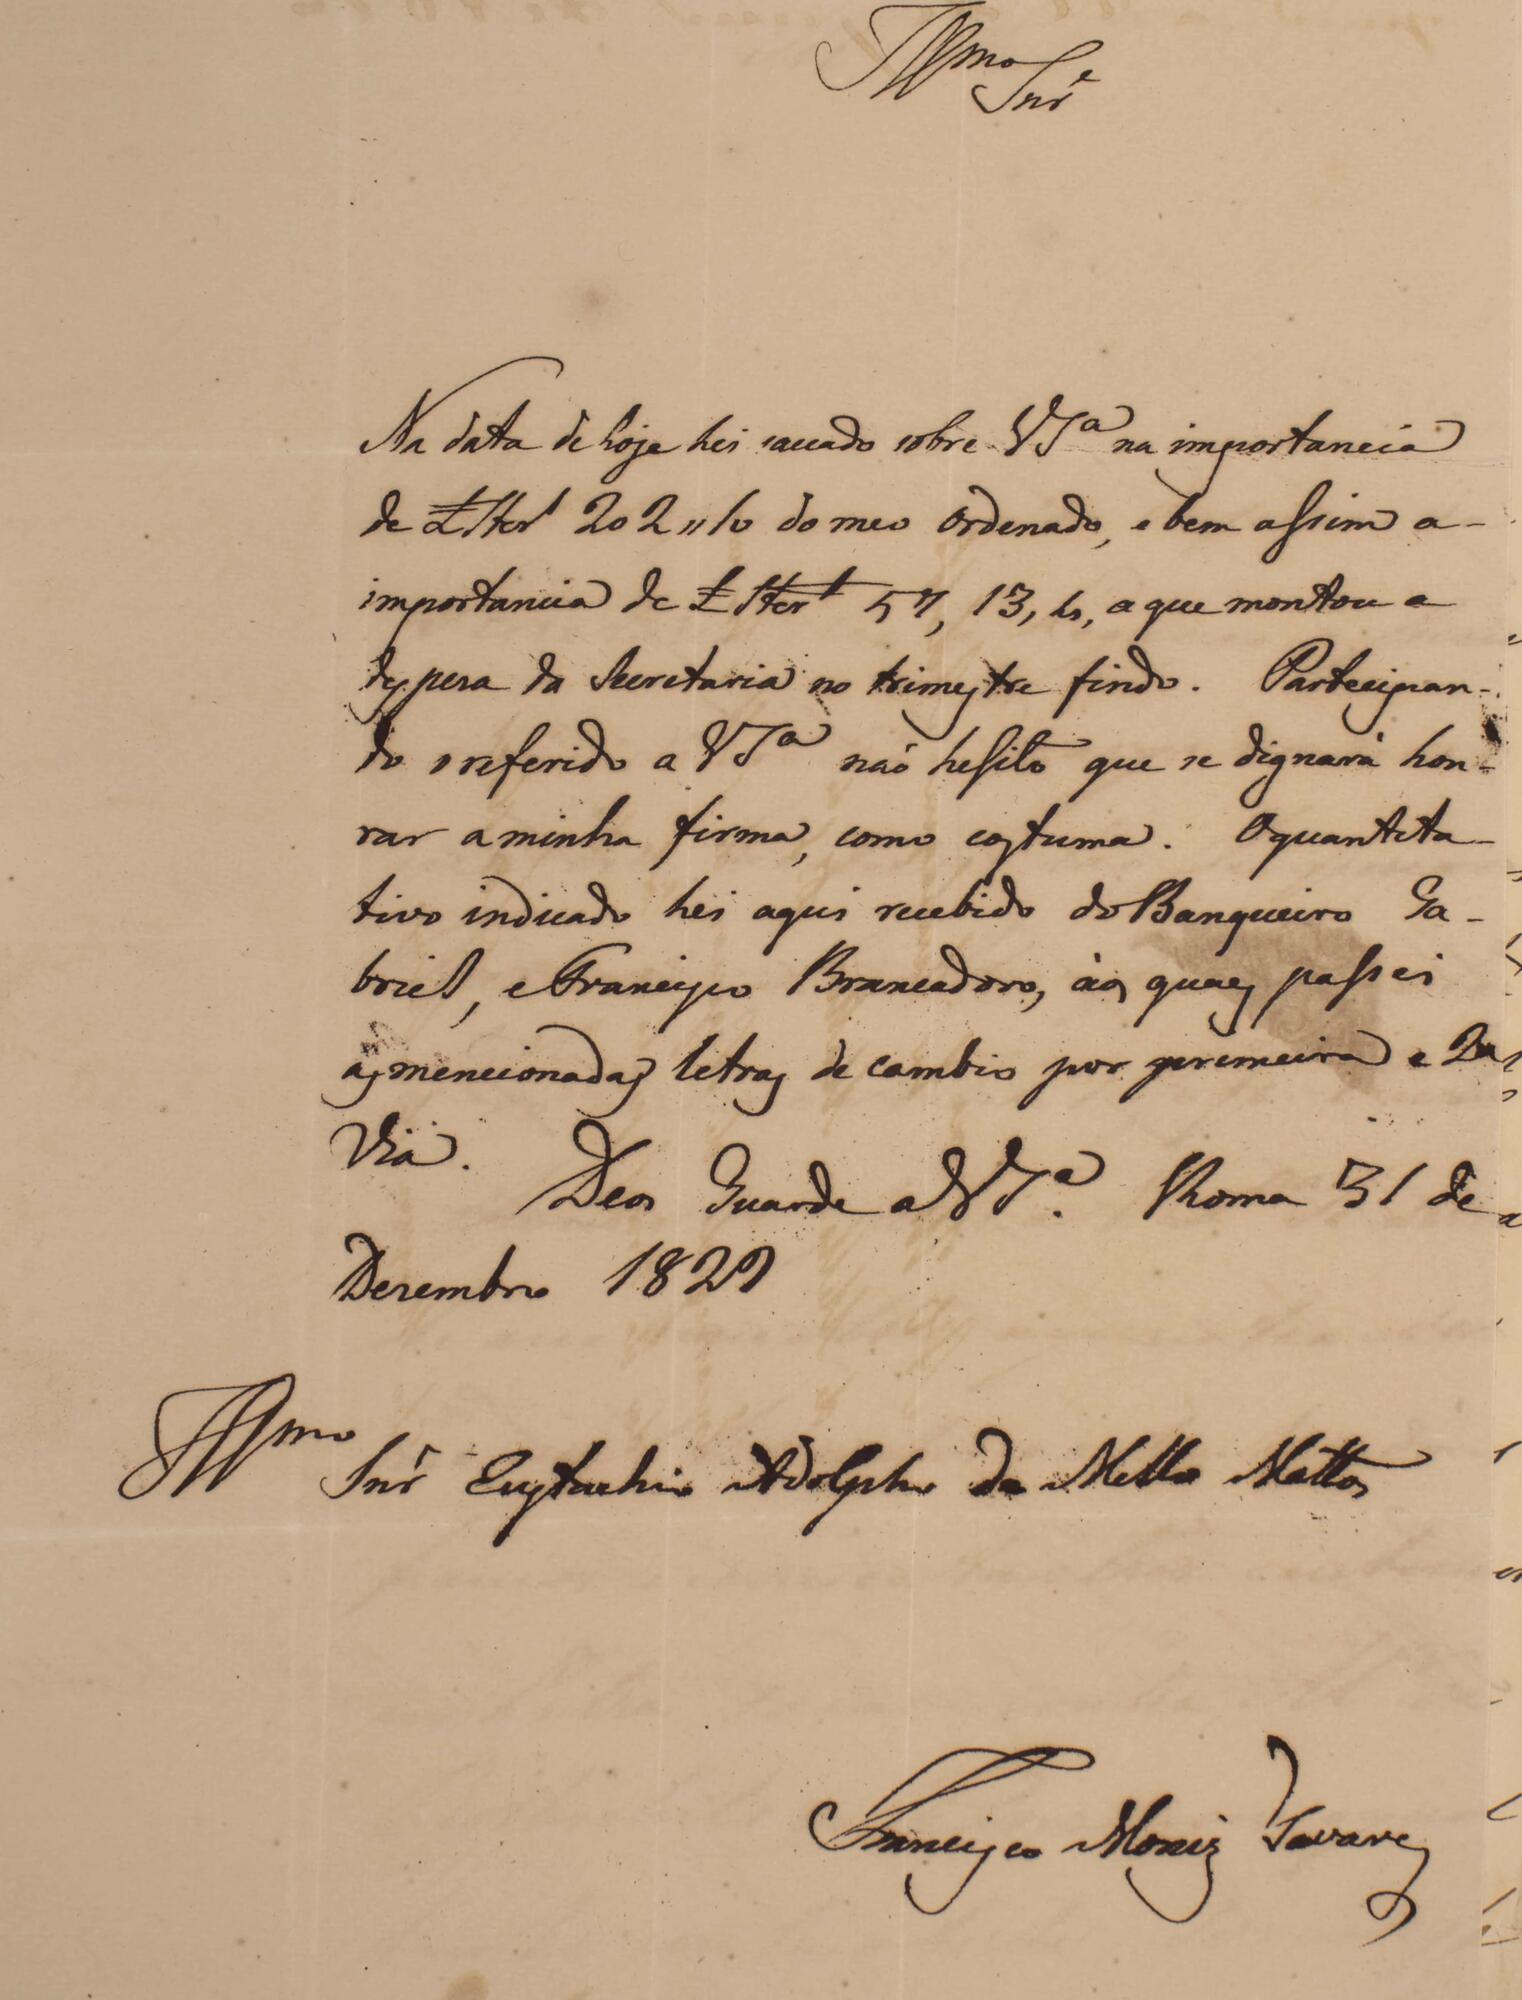 Illmo Snr͛
Na data de hoje hei sacado sobre VSa na importancia
de £ Sterl 202,,10 do meo Ordenado, e bem assim a
importancia de £ Sterl 57, 13, a que montou a
despesa da Secretaria no trimestre findo. Partecipan-
do o referido a VSa naó hesito que se dignará hon-
rar a minha firma, como costuma. O quantita-
tivo indicado hei aqui recebido do Banqueiro Ga-
briel, e Francisco Brancadoro, áos quaes passei
as mencionadas letras de cambio por premeira e 2a
Via. Deos Guarde a VSa. Rhoma 31 de
Dezembro 1829
Illmo Snr Eustachio Adolpho de Mello Mattos
Francisco Moniz Tavares